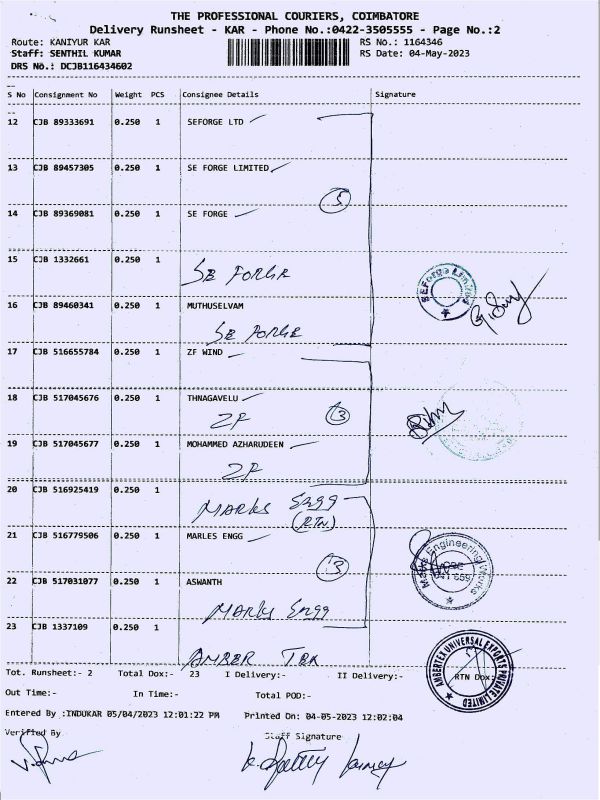 THE PROFESSIONAL COURIERS, COIMBATORE
Delivery Runsheet - KAR - Phone No.:0422-3505555 - Page No.:2
Route: KANIYUR KAR
RS No.: 1164346
Staff: SENTHIL KUMAR
RS Date: 04-May-2023
DRS No.: DCJB116434602
S No Consignment No Weight PCS Consignee Details Signature
12 CJB 89333691 0.250 1 SEFORGE LTD
13 CJB 89457305 0.250 1 SE FORGE LIMITED
5
14 CJB 89369081 0.250 1 SE FORGE
15 CJB 1332661 0.250 1
SE FORGE
SEForge Limited
16 CJB 89460341 0.250 1 MUTHUSELVAM
SE FORGE
17 CJB 516655784 0.250 1 ZF WIND
18 CJB 517045676 0.250 1 THNAGAVELU
ZF
3
19 CJB 517045677 0.250 1 MOHAMMED AZHARUDEEN
ZF
20 CJB 516925419 0.250 1
MARKS Engg
(RTN)
21 CJB 516779506 0.250 1 MARLES ENGG
3
Engineering Works
641 659
22 CJB 517031077 0.250 1 ASWANTH
Marks Engg
23 CJB 1337109 0.250 1
AMBER TEX
AMBERTEX UNIVERSAL EXPORTS PRIVATE LIMITED
Tot. Runsheet:- 2 Total Dox:- 23 I Delivery:- II Delivery:- RTN Dox:
Out Time:- In Time:- Total POD:-
Entered By :INDUKAR 05/04/2023 12:01:22 PM Printed On: 04-05-2023 12:02:04
Verified By Staff Signature